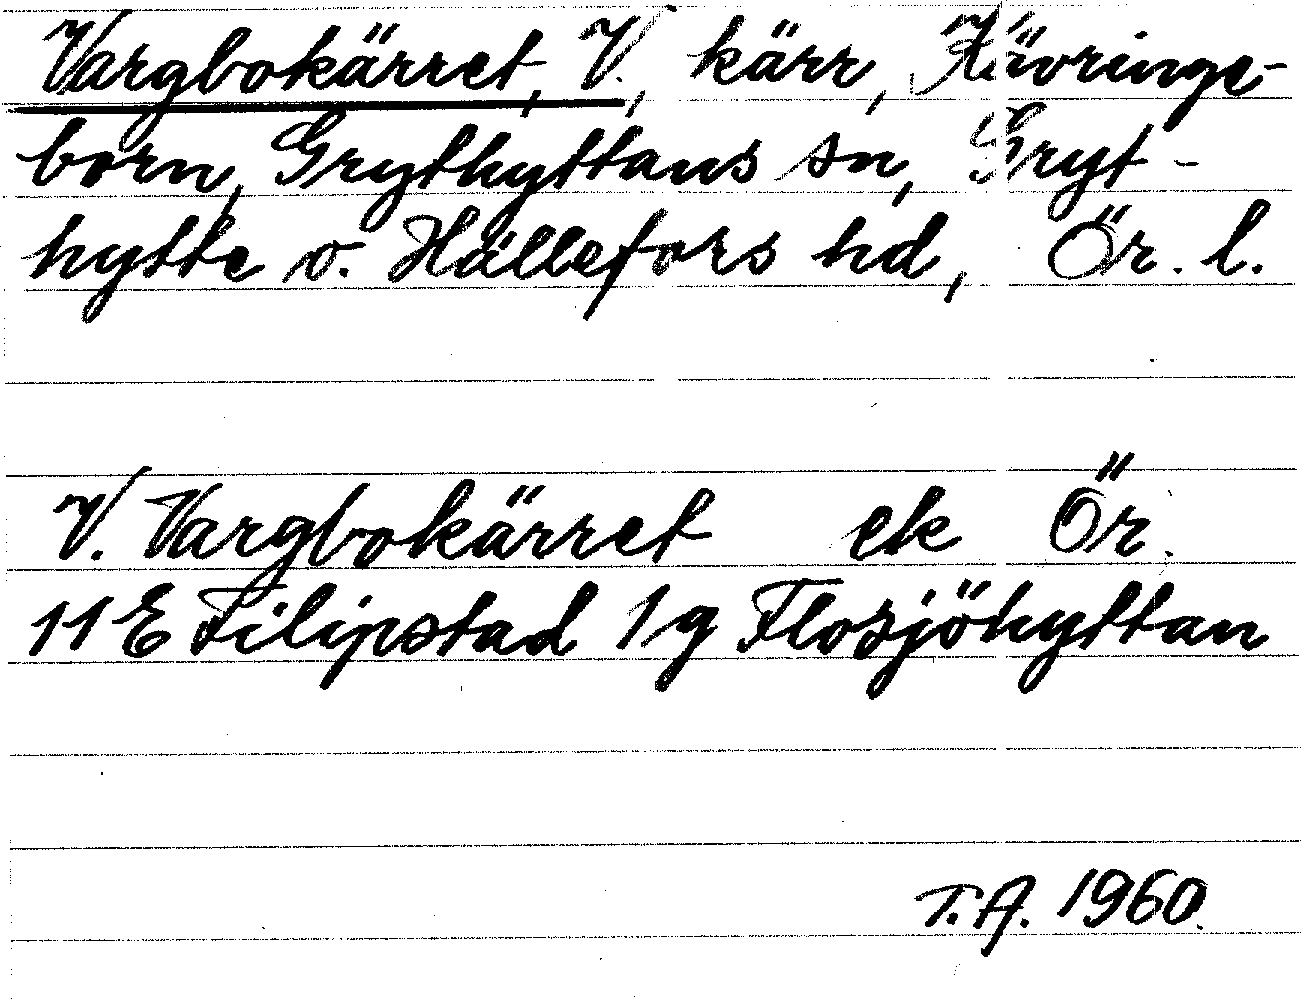 Vargbokärret, V., kärr, Kävringe-
born, Grythyttans sn, Gryt-
hytte o. Hällefors hd, Ör. l.
V. Vargbokärret ek Ör.
11 E Filipstad 1g Flosjöhyttan
T.A. 1960.